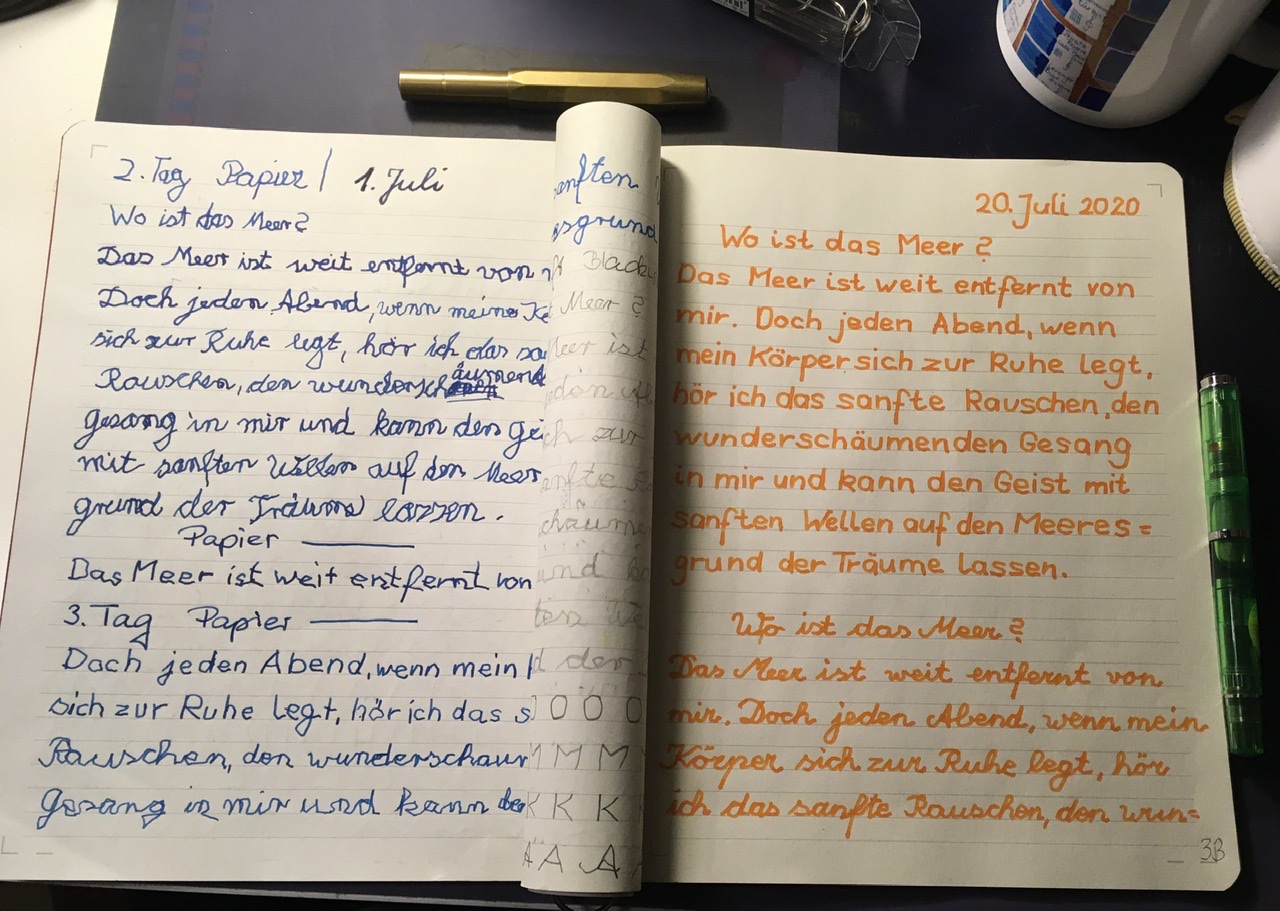 2. Tag Papier / 1. Juli
Wo ist das Meer?
Das Meer ist weit entfernt von
Doch jeden Abend, wenn meine
sich zur Ruhe legt, hör ich das
Rauschen, den wundersch äumend
gesang in mir und kann den
mit sanften Wellen auf den Meer
grund der Träume lassen.
Papier
Das Meer ist weit entfernt von
3. Tag Papier
Doch jeden Abend, wenn mein
sich zur Ruhe legt, hör ich das s
Rauschen, den wunderschaum
gesang in mir und kann den
anften
sgrund
Black
Meer?
Meer ist
den Ab
ch zur
anfte
chäume
und
ten We
d der
O O O
M M M
K K K
A A A
20. Juli 2020
Wo ist das Meer?
Das Meer ist weit entfernt von
mir. Doch jeden Abend, wenn
mein Körper sich zur Ruhe legt,
hör ich das sanfte Rauschen, den
wunderschäumenden Gesang
in mir und kann den Geist mit
sanften Wellen auf den Meeres=
grund der Träume lassen.
Wo ist das Meer?
Das Meer ist weit entfernt von
mir. Doch jeden Abend, wenn mein
Körper sich zur Ruhe legt, hör
ich das sanfte Rauschen, den wun=
33